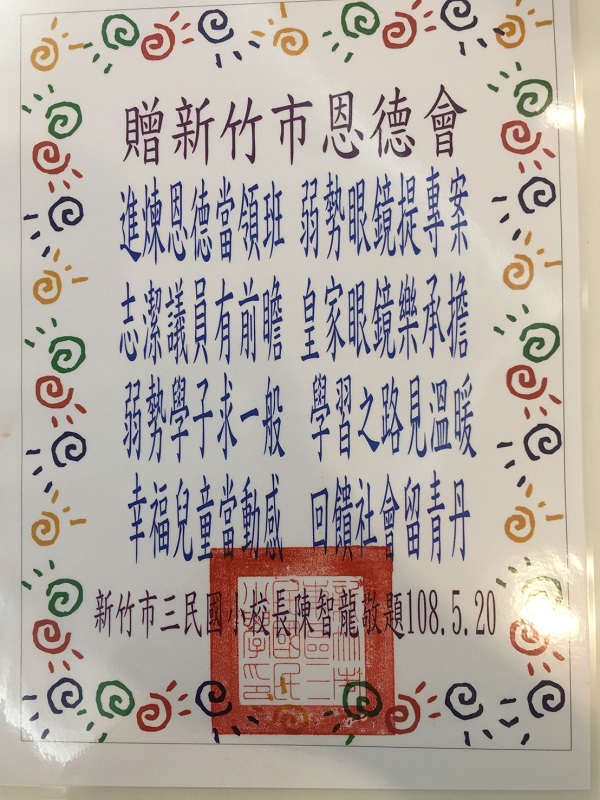 贈新竹市恩德會
進煉恩德當領班 弱勢眼鏡提專案
志潔議員有前瞻 皇家眼鏡樂承擔
弱勢學子求一般 學習之路見溫暖
幸福兒童當動感 回饋社會留青丹
新竹市三民國小校長陳智龍敬題108.5.20